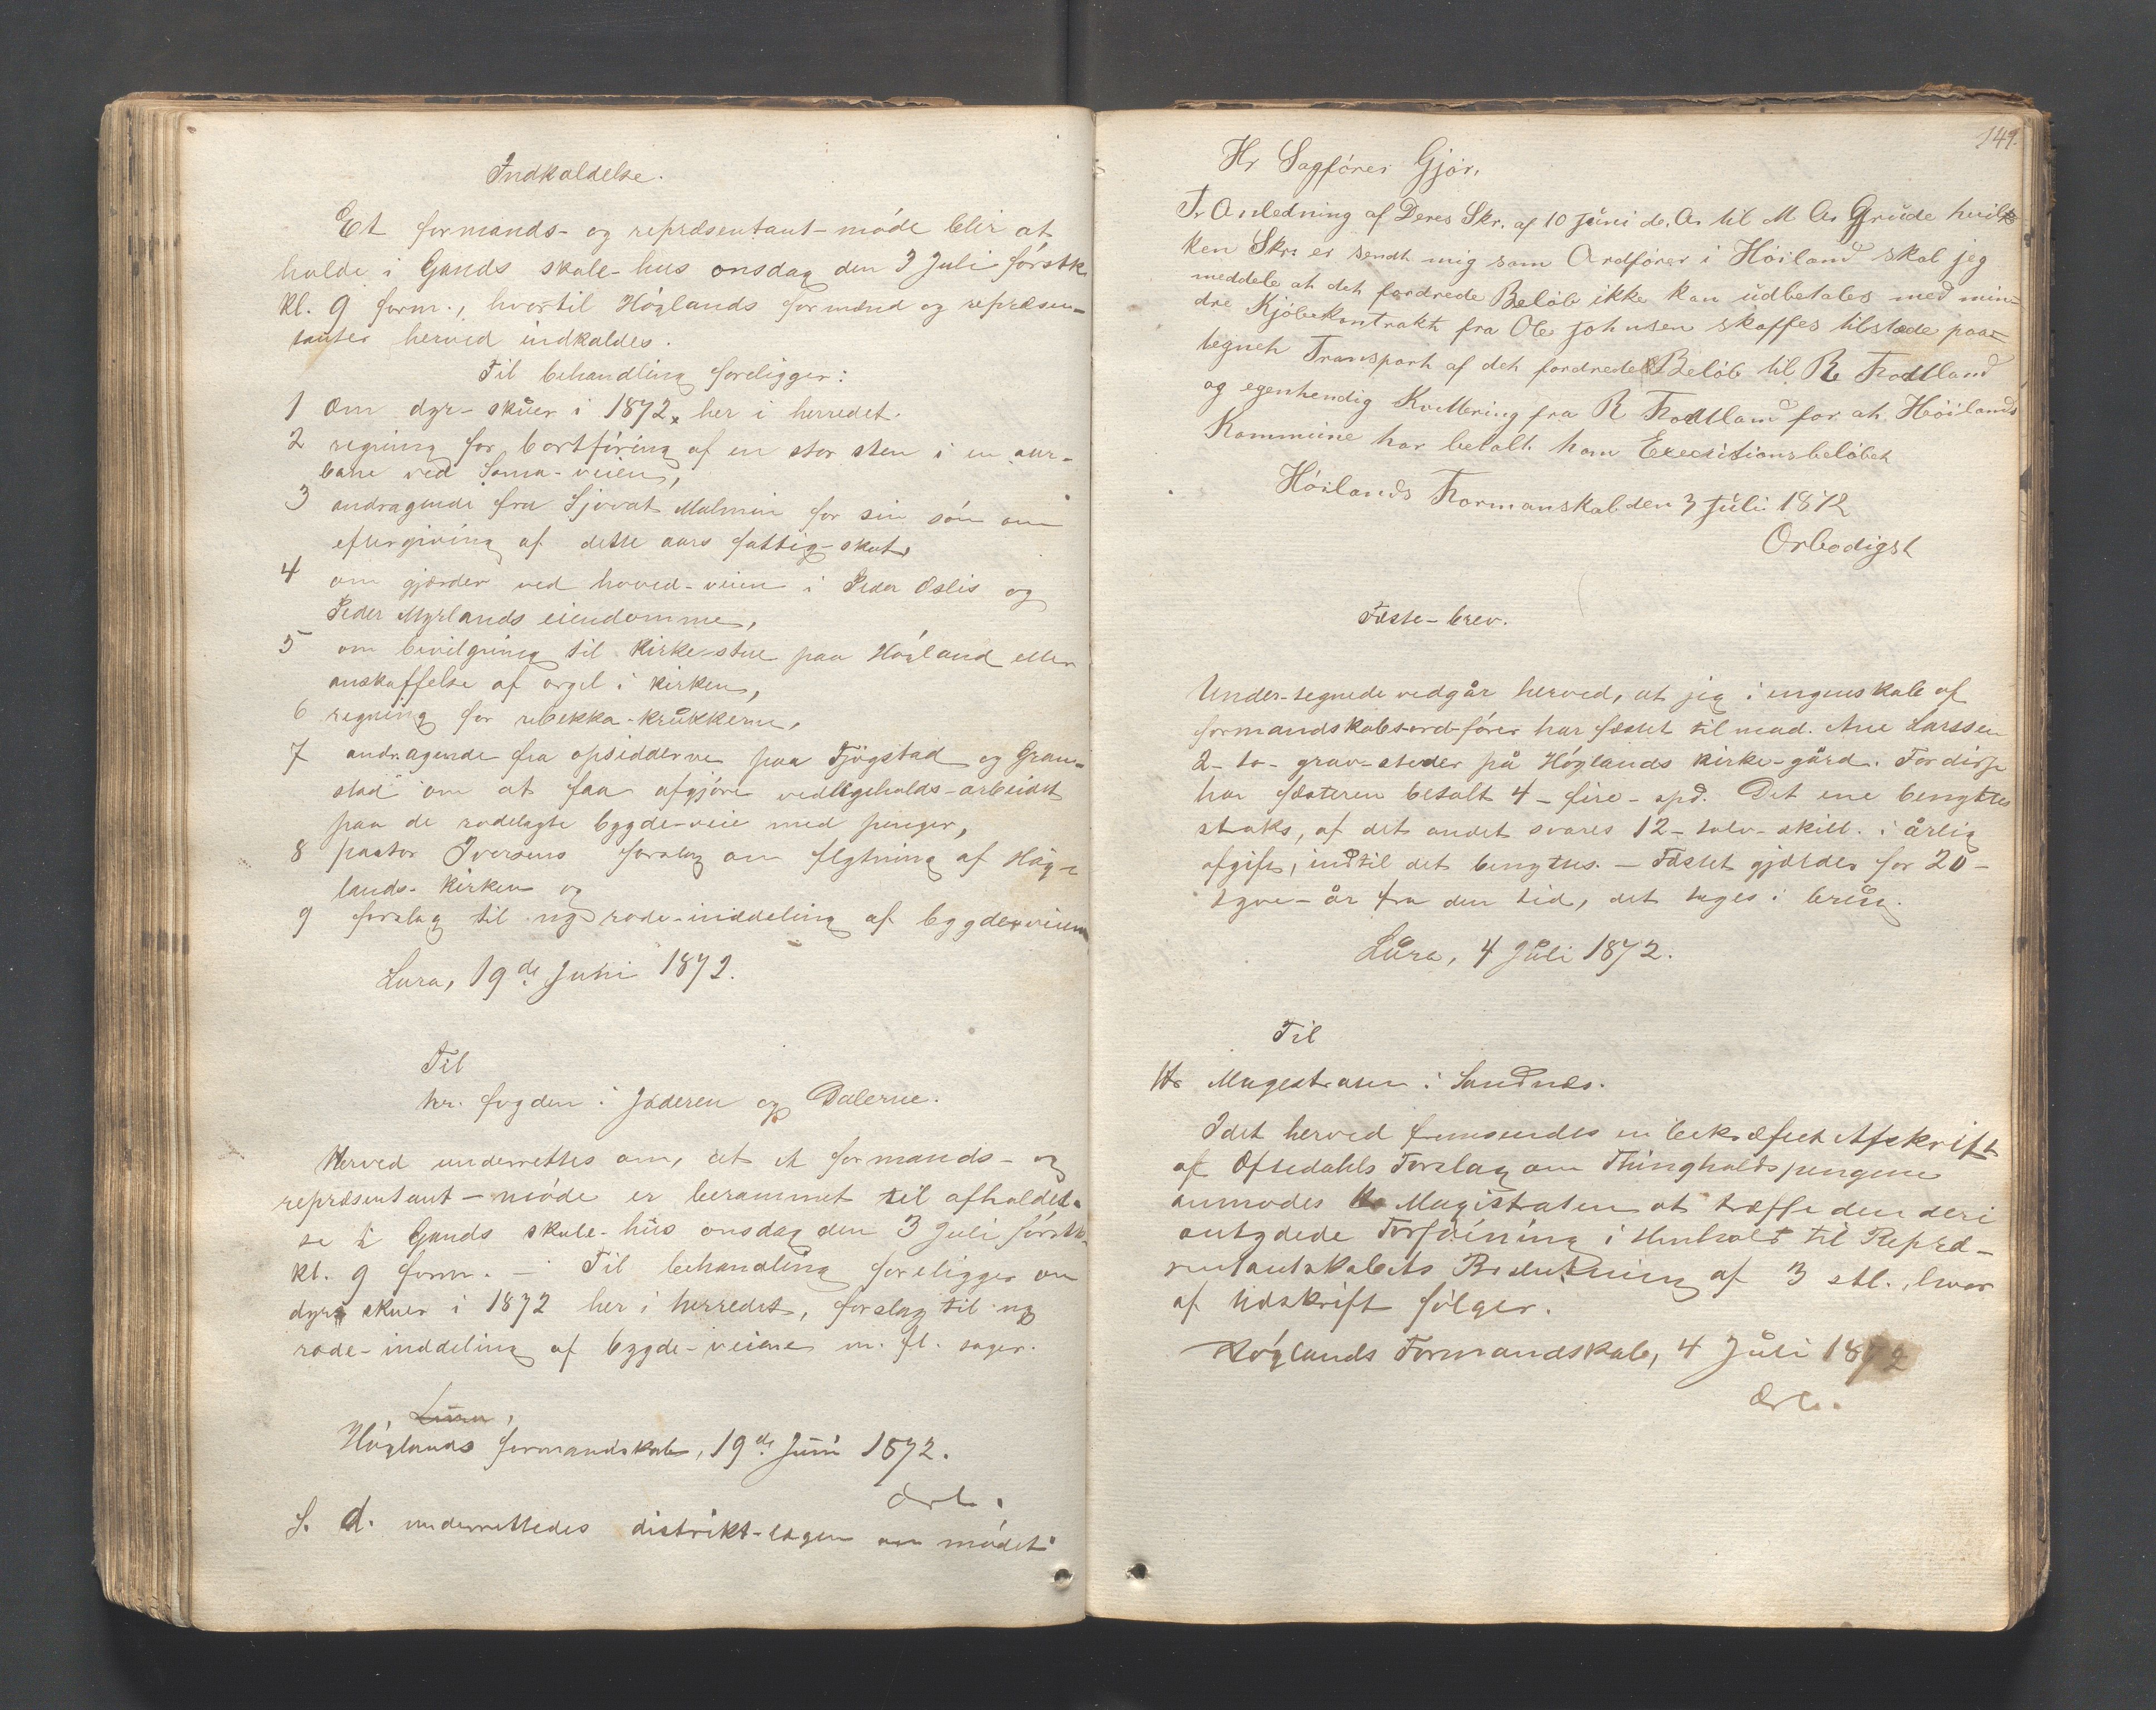 Indkaldelse.
Et formands- og repræsentant-møde blir at
holde i Gands skole-hus onsdag den 3 Juli førstk.
kl. 9 form., hvortil Høylands formænd og repræsen-
tanter herved indkaldes.
Til behandling foreligger:
1 Om dyr-skuer i 1872 her i herredet.
2 regning for bortføring af en stor sten i en aur-
bane ved Soma-veien,
3 andragende fra Sjovat Malmin for sin søn om
eftergivning af dette aars fattig-skat,
4 om gjærder ved hoved-veien i Peder Øslis og
Peder Myrlands eiendomme,
5 om bevilgning til kirke-stue paa Høyland eller
anskaffelse af orgel i kirken,
6 regning for rebekka-krukkerne,
7 andragende fra opsidderne paa Fjøgstad og Gram-
stad om at faa afgjøre vedligeholds-arbeidet
paa de rodelagte bygde-veie med penger,
8 pastor Iversens forslag om flytning af Høy-
lands-kirken og
9 forslag til ny rode-inddeling af bygdeveiene
Lura, 19de Juni 1872.
Til
hr. fogden i Jæderen og Dalerne.
Herved underrettes om, at et formands- og
repræsentant-møde er berammet til afholdel-
se i Gands skole-hus onsdag den 3 Juli førstk.
kl. 9 form. – Til behandling foreligger om
dyrskuer i 1872 her i herredet, forslag til ny
rode-inddeling af bygde-veiene m. fl. sager.
Lura,
Høylands formandskab, 19de Juni 1872.
Ærb.
S. d. underrettedes distrikt-lægen om mødet.
149.
Hr Sagfører Gjør.
I Anledning af Deres Skr. af 10 Juni d. A. til M As Grude hvil-
ken Skr. er sendt mig som Ordfører i Høiland skal jeg
meddele at det fordrede Beløb ikke kan udbetales med min-
dre Kjøbekontrakt fra Ole Johnsen skaffes tilstede paa-
tegnet Transport af det fordrede Beløb til R Frotland
og egenhendig Kvittering fra R Frotland for at Høilands
Kommune har betalt ham Execitionsbeløbet
Høilands Formanskab den 3 Juli 1872
Ærbødigst
Fæste-brev.
Under-tegnede vedgår herved, at jeg i engenskab af
formandskabs-ord-fører har fæstet til mad. Ane Larssen
2- to- grav-steder på Høylands kirke-gård. For disse
har fæsteren betalt 4 – fire – spd. Det ene benyttes
straks, af det andet svares 12 – tolv – skill. i årlig
afgift, indtil det benyttes. – Fæstet gjælder for 20 –
tyve – år fra den tid, det tages i brug.
Lura, 4 Juli 1872.
Til
Hr Magestraten i Sandnæs.
Idet herved fremsendes en bekræftet Afskrift
af Oftedahls Forslag om Thingholdspengene
anmodes Hr Magistraten at træffe den deri
antydede Forføining i Henhold til Repræ-
sentantskabets Beslutning af 3 stl., hvor
af Udskrift følger.
Høylands Formandskab, 4 Juli 1872
Ærb.